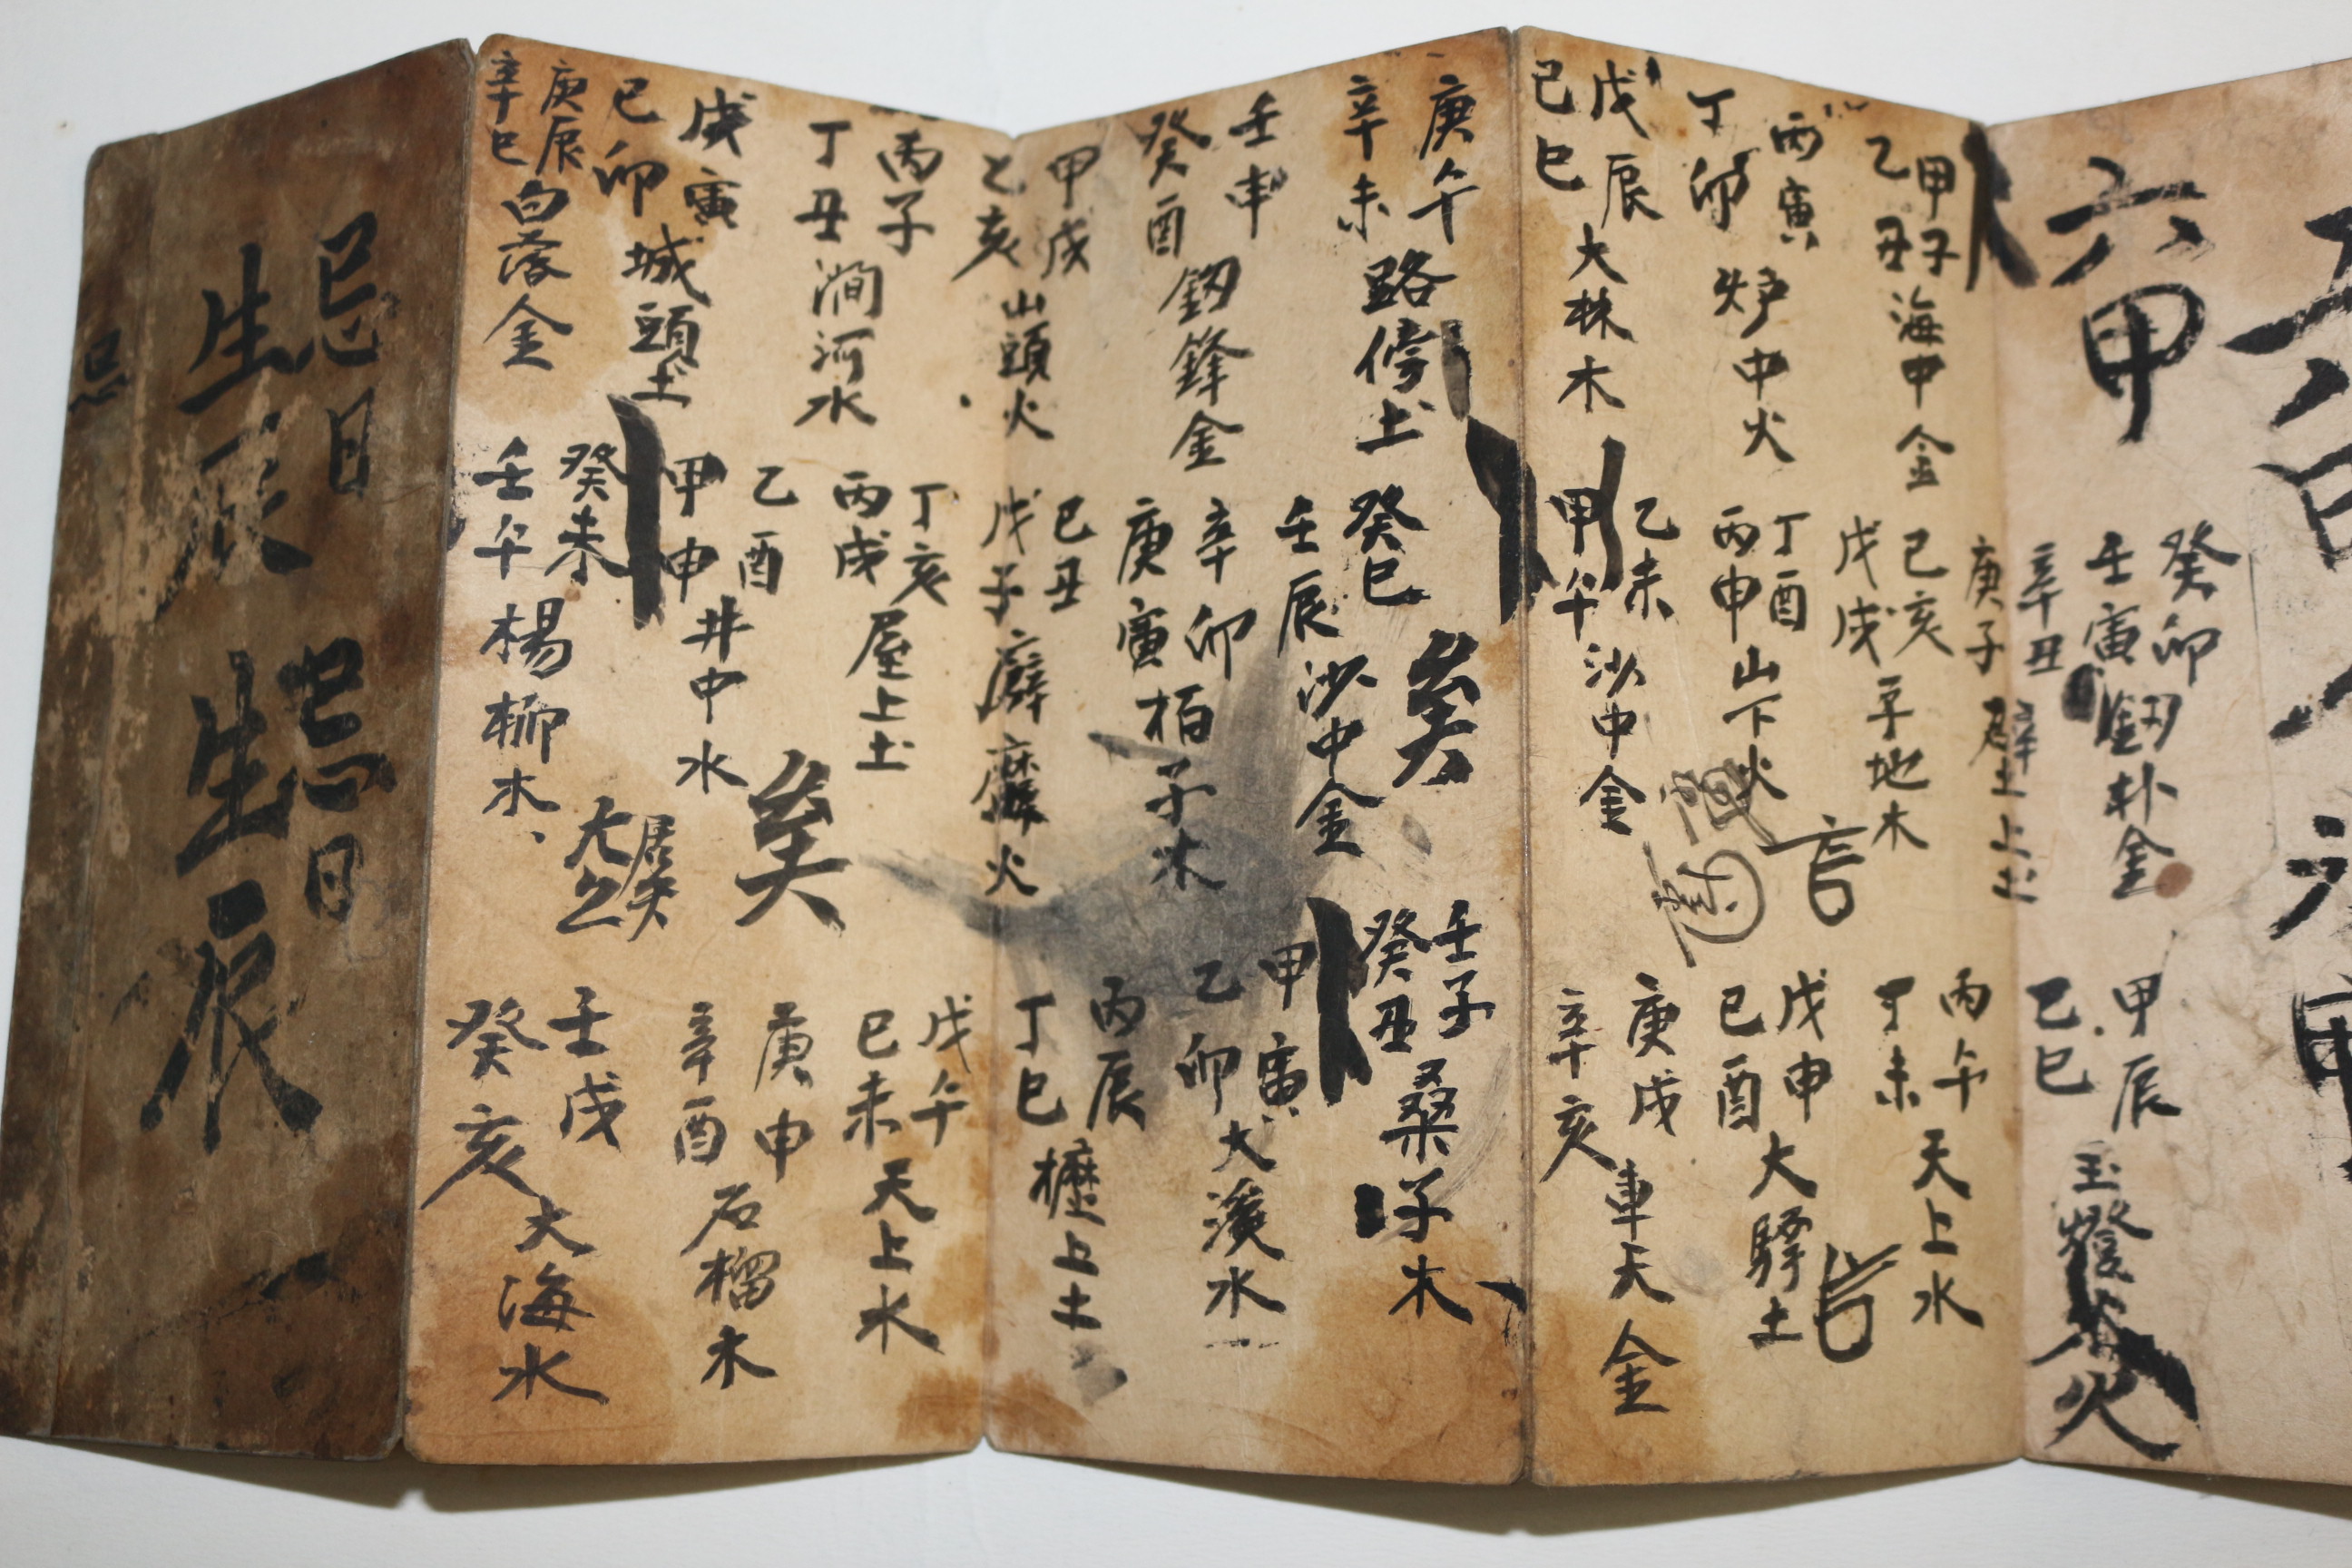 六甲
甲子
乙丑
海中金
丙寅
丁卯
炉中火
戊辰
己巳
大林木
庚午
辛未
路傍土
壬申
癸酉
釰鋒金
甲戌
乙亥
山頭火
丙子
丁丑
澗河水
戊寅
己卯
城頭土
庚辰
辛巳
白落金
壬午
癸未
楊柳木
甲申
乙酉
井中水
丙戌
丁亥
屋上土
戊子
己丑
火
庚寅
辛卯
栢子木
壬辰
癸巳
沙中金
甲午
乙未
沙中金
丙申
丁酉
山下火
戊戌
己亥
平地木
庚子
辛丑
上土
壬寅
癸卯
釰朴金
甲辰
己巳
玉燈火
丙午
丁未
天上水
戊申
己酉
大驛土
庚戌
辛亥
車天金
壬子
癸丑
桑子木
甲寅
乙卯
大溪水
丙辰
丁巳
上土
戊午
己未
天上水
庚申
辛酉
石榴木
壬戌
癸亥
大海水
言
矣
矣
忌日 忌日
生辰 生辰
忌